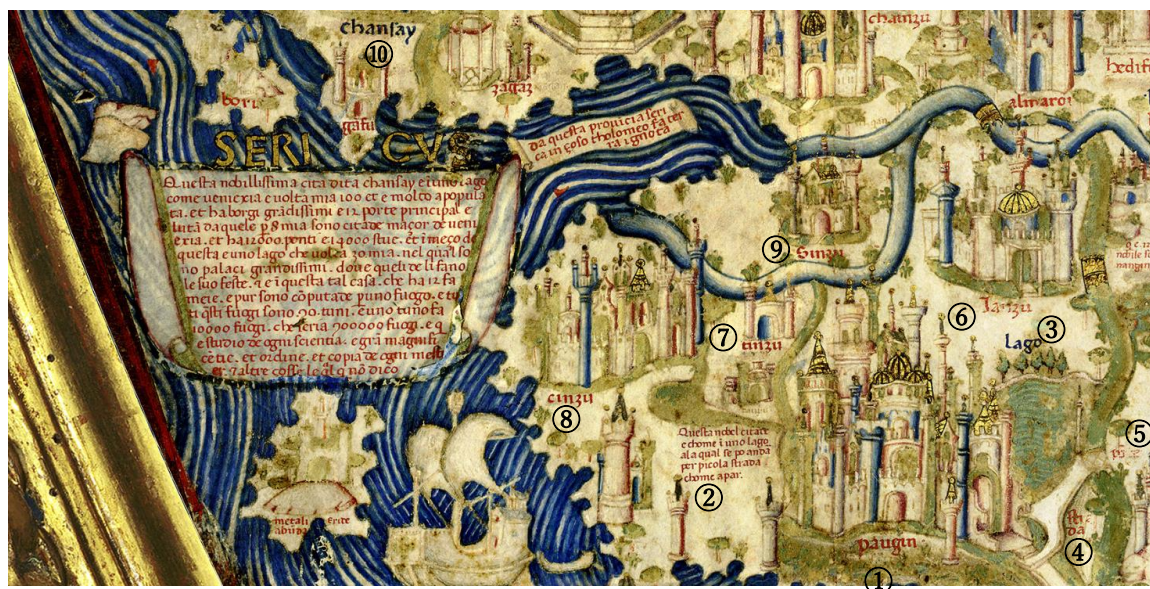 chansay
⑩
bori
gafu
zagaz
chanzu
almaroi
SERI CVS
da questa provicia seri
ca in goso tholomeo fa ter
ra ignoca
Questa nobillissima cita dita chansay e i uno lago
come veniexia e volta mia 100 et e molto apopula
ta. et ha borgi gradissimi e 12 porte principal e
luta da quele p 8 mia sono cita de maçor de veni
eria. et ha 12000 ponti e 14000 stue. et i meço de
questa e uno lago che volza 30 mia. nel qual so
no palaci grandissimi. dove queli de li fano
le suo feste. 2 e i questa tal casa. che ha 12 fa
meie. e pur sono coputa de p uno fuogo. e tu
ti qsti fuogi sono 90. tuni. e uno tuno fa
10000 fuogi. che seria 900000 fuogi. e q
e studio de ogni scientia. e gra magnifi
cetie. et ordine. et copia de ogni mesti
er. 7 altre cosse le ql q no dico
⑨
Singu
⑥
Janzu
③
lago
⑦
tinzu
cinzu
⑧
⑤
Questa nobel citade
e chome i uno lago
ala qual se po anda
per picola strada
chome apar.
②
paugin
①
④